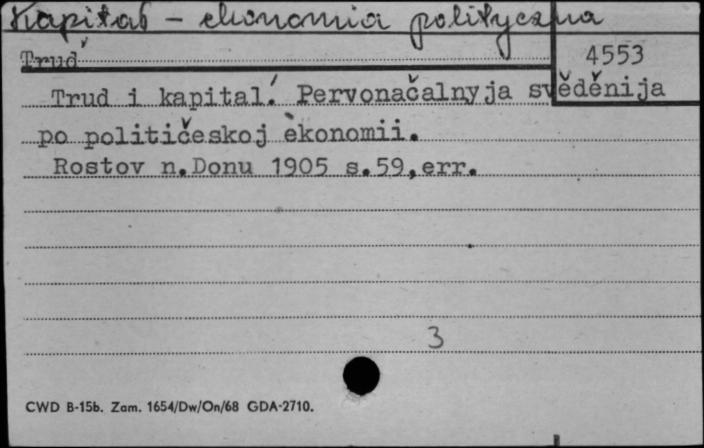 Kapitał - ekonomia polityczna
Trud
4553
Trud i kapital. Pervonačalnyja svěděnija
po političeskoj ėkonomii.
Rostov n.Donu 1905 s.59,err.
3
CWD B-15b. Zam. 1654/Dw/On/68 GDA-2710.